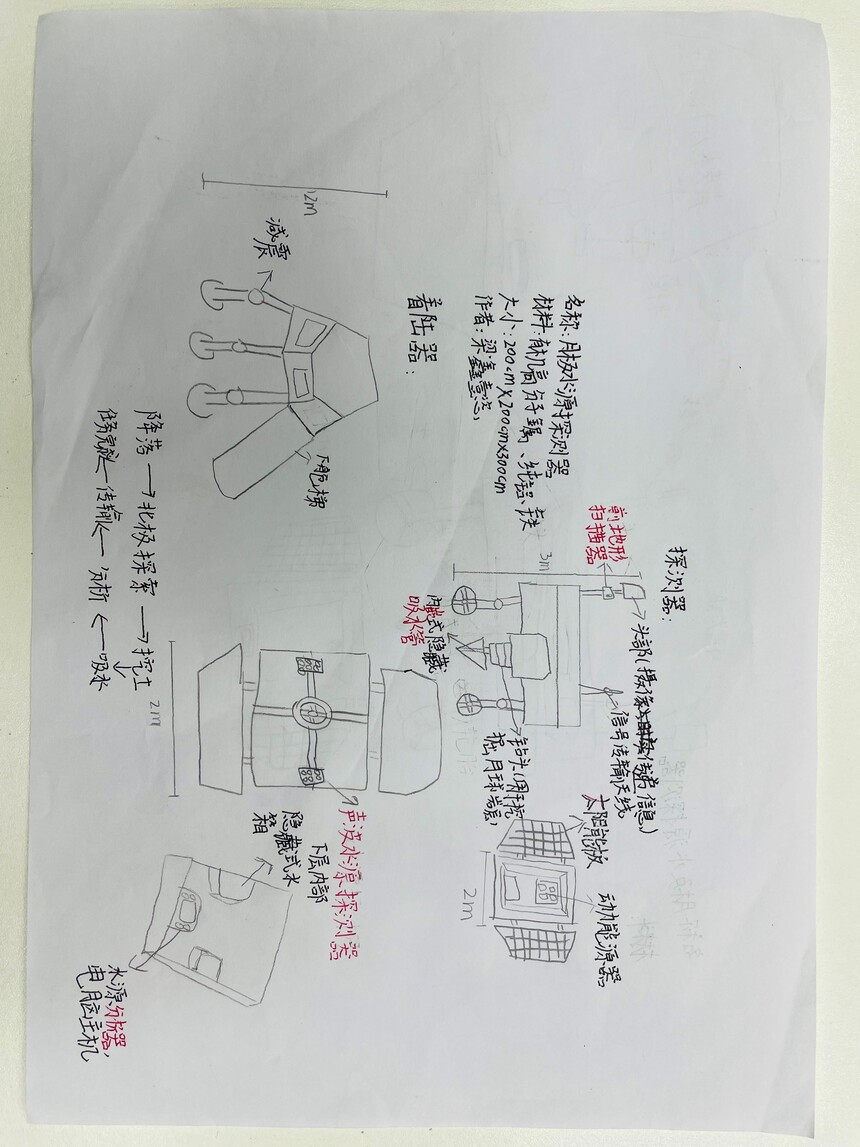 名称:月极水源探测器
材料:有机高分子金属、纯铝、铁
大小:200cm×200cm×300cm
作者:梁鑫
着陆器:
12m
减震
下舱梯
降落→北极探索→挖土
→吸水→分析→传输→任务完成
探测器:
3m
前地形
扫描器
头部(摄像头
传递信息)
信号传输天线
隐藏
吸水管
钻头(用于挖
掘月球岩层)
太阳能板
动力能源器
2m
2m
声波水源探测器
下层内部
隐藏式水
箱
水源分析器,
电脑主机